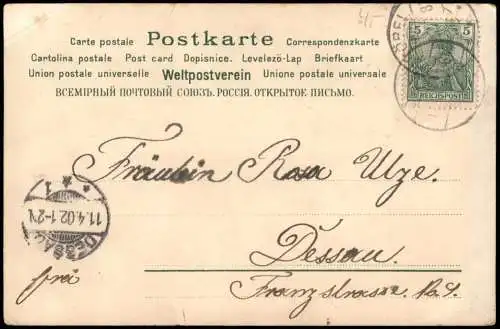 Carte postale Postkarte Correspondenzkarte
Cartolina postale Post card Dopisnice. Levelező-Lap Briefkaart
Union postale universelle Weltpostverein Unione postale universale
ВСЕМІРНЫЙ ПОЧТОВЫЙ СОЮЗЪ. РОССІЯ. ОТКРЫТОЕ ПИСЬМО.
5 5
REICHSPOST
Fräulein Rosa Ulze.
DESSAU 1
11.4.02.1-2N
Dessau.
frei
Franzstrasse